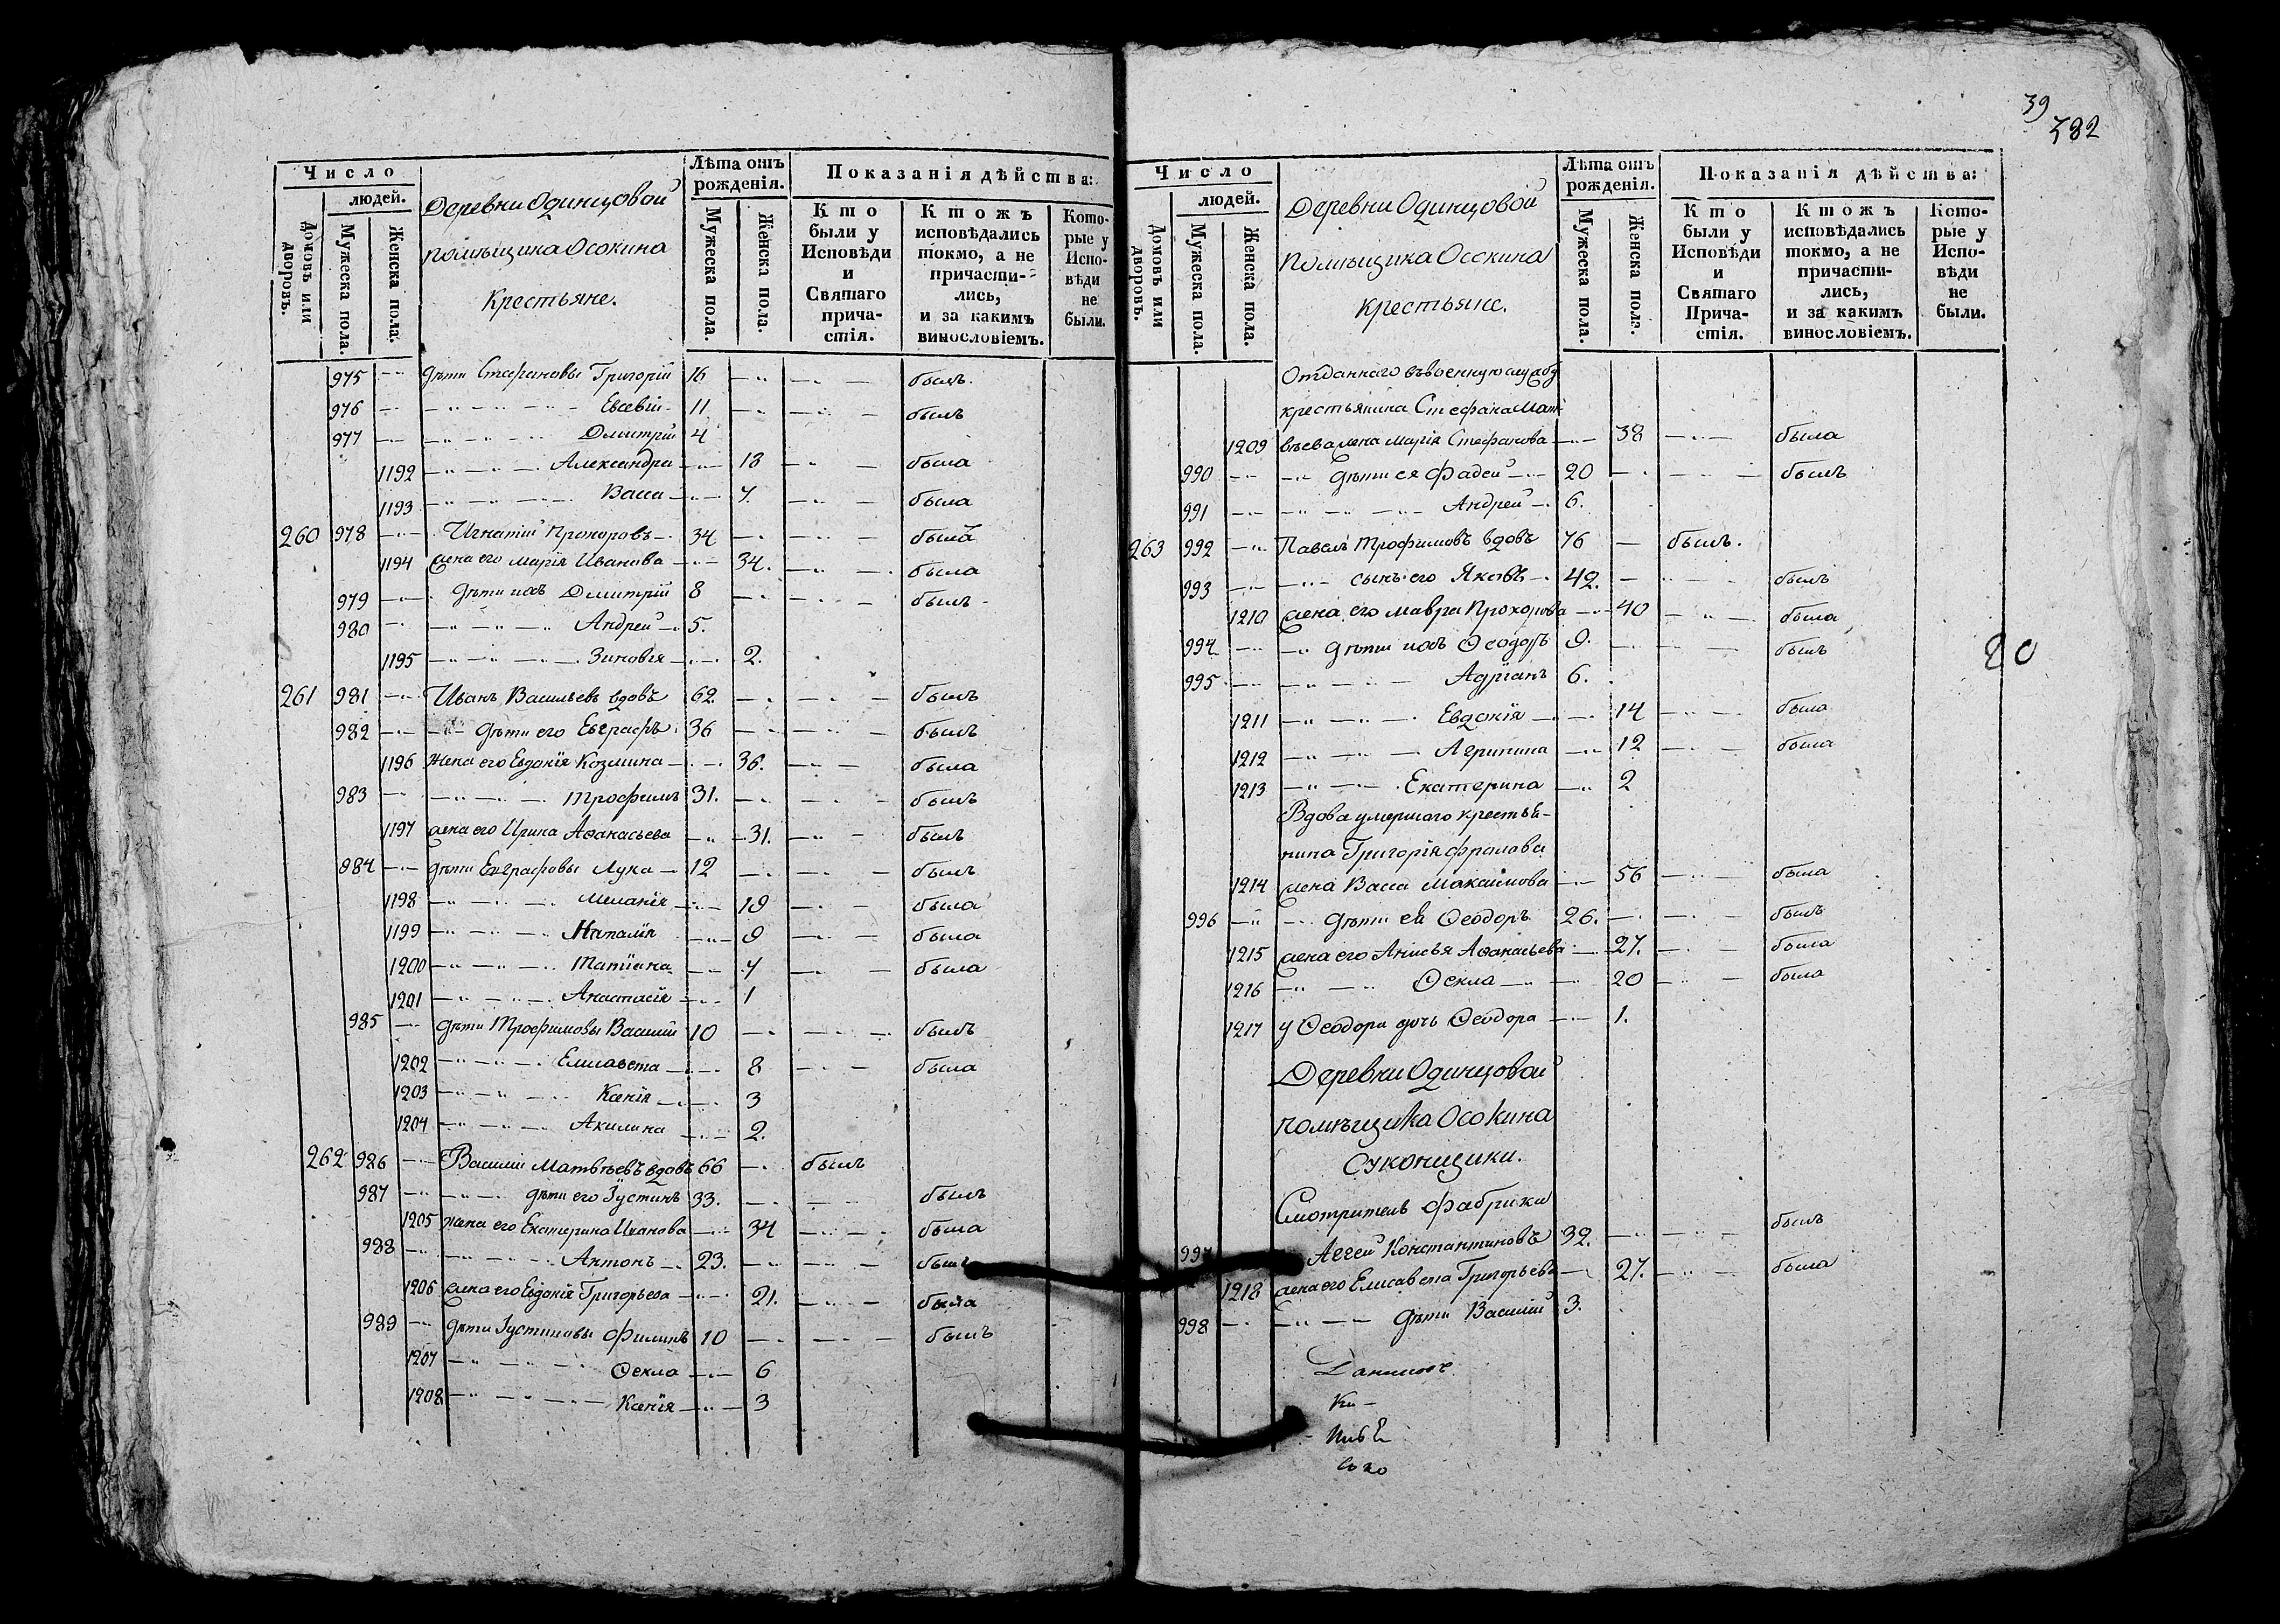 39
382
Число
людей.
Домовъ или дворовъ.
Мужеска пола.
Женска пола.
Деревни Одинцовой
помѣщика Осокина
крестьяне.
Лѣта отъ рожденія.
Мужеска пола.
Женска пола.
Показанія дѣйства:
Кто были у Исповѣди и Святаго причастія.
Ктожъ исповѣдались токмо, а не причастились, и за какимъ винословіемъ.
Которые у Исповѣди не были.
975 дѣти Стефановы Григорій 16 былъ.
976 Евсевій 11 былъ
977 Дмитрій 4
1192 Александра 13 была
1193 Васса 7. была
260 978 Игнатій Прохоровъ 34 былъ
1194 жена его Марія Иванова 34. была
979 дѣти ихъ Дмитрій 8 былъ
980 Андрей 5.
1195 Зиновія 2.
261 981 Иванъ Васильевъ вдовъ 62. былъ
982 дѣти его Евграфъ 36 былъ
1196 жена его Евдокія Козмина 36. была
983 Трофимъ 31. былъ
1197 жена его Ирина Аѳанасьева 31. былъ
984 дѣти Евграфовы Лука 12 былъ
1198 Меланія 19 была
1199 Наталія 9 была
1200 Татіана 7 была
1201 Анастасія 1
985 дѣти Трофимовы Василій 10 былъ
1202 Елисавета 8 была
1203 Ксенія 3
1204 Акилина 2.
262 986 Василій Матвѣевъ вдовъ 66 былъ
987 дѣти его Іустинъ 33. былъ
1205 жена его Екатерина Иванова 34 была
988 Антонъ 23. былъ
1206 жена его Евдокія Григорьева 21. была
989 дѣти Іустиновы Филипъ 10 былъ
1207 Ѳекла 6
1208 Ксенія 3
Число
людей.
Домовъ или дворовъ.
Мужеска пола.
Женска пола.
Деревни Одинцовой
помѣщика Осокина
крестьяне.
Лѣта отъ рожденія.
Мужеска пола.
Женска пола.
Показанія дѣйства:
Кто были у Исповѣди и Святаго Причастія.
Ктожъ исповѣдались токмо, а не причастились, и за какимъ винословіемъ.
Которые у Исповѣди не были.
Отданнаго въ военную службу
крестьянина Стефана Мат-
1209 вѣева жена Марія Стефанова 38 была
990 дѣти ея Фадей 20 былъ
991 Андрей 6.
263 992 Павелъ Трофимовъ вдовъ 76 былъ.
993 сынъ его Яковъ 42. былъ
1210 жена его Мавра Прохорова 40 была
994 дѣти ихъ Ѳеодоръ 9. былъ
995 Адріанъ 6.
1211 Евдокія 14 была
1212 Агрипина 12 была
1213 Екатерина 2
Вдова умершаго крестья-
нина Григорія Фролова
1214 жена Васса Максимова 56 была
996 дѣти ея Ѳеодоръ 26. былъ
1215 жена его Анисья Аѳанасьева 27. была
1216 Ѳекла 20 была
1217 у Ѳеодора дочь Ѳеодора 1.
Деревни Одинцовой
помѣщика Осокина
Суконщики.
Смотритель фабрики
997 Аггей Константиновъ 32. былъ
1218 жена его Елисавета Григорьева 27. была
998 дѣти Василій 3.
20